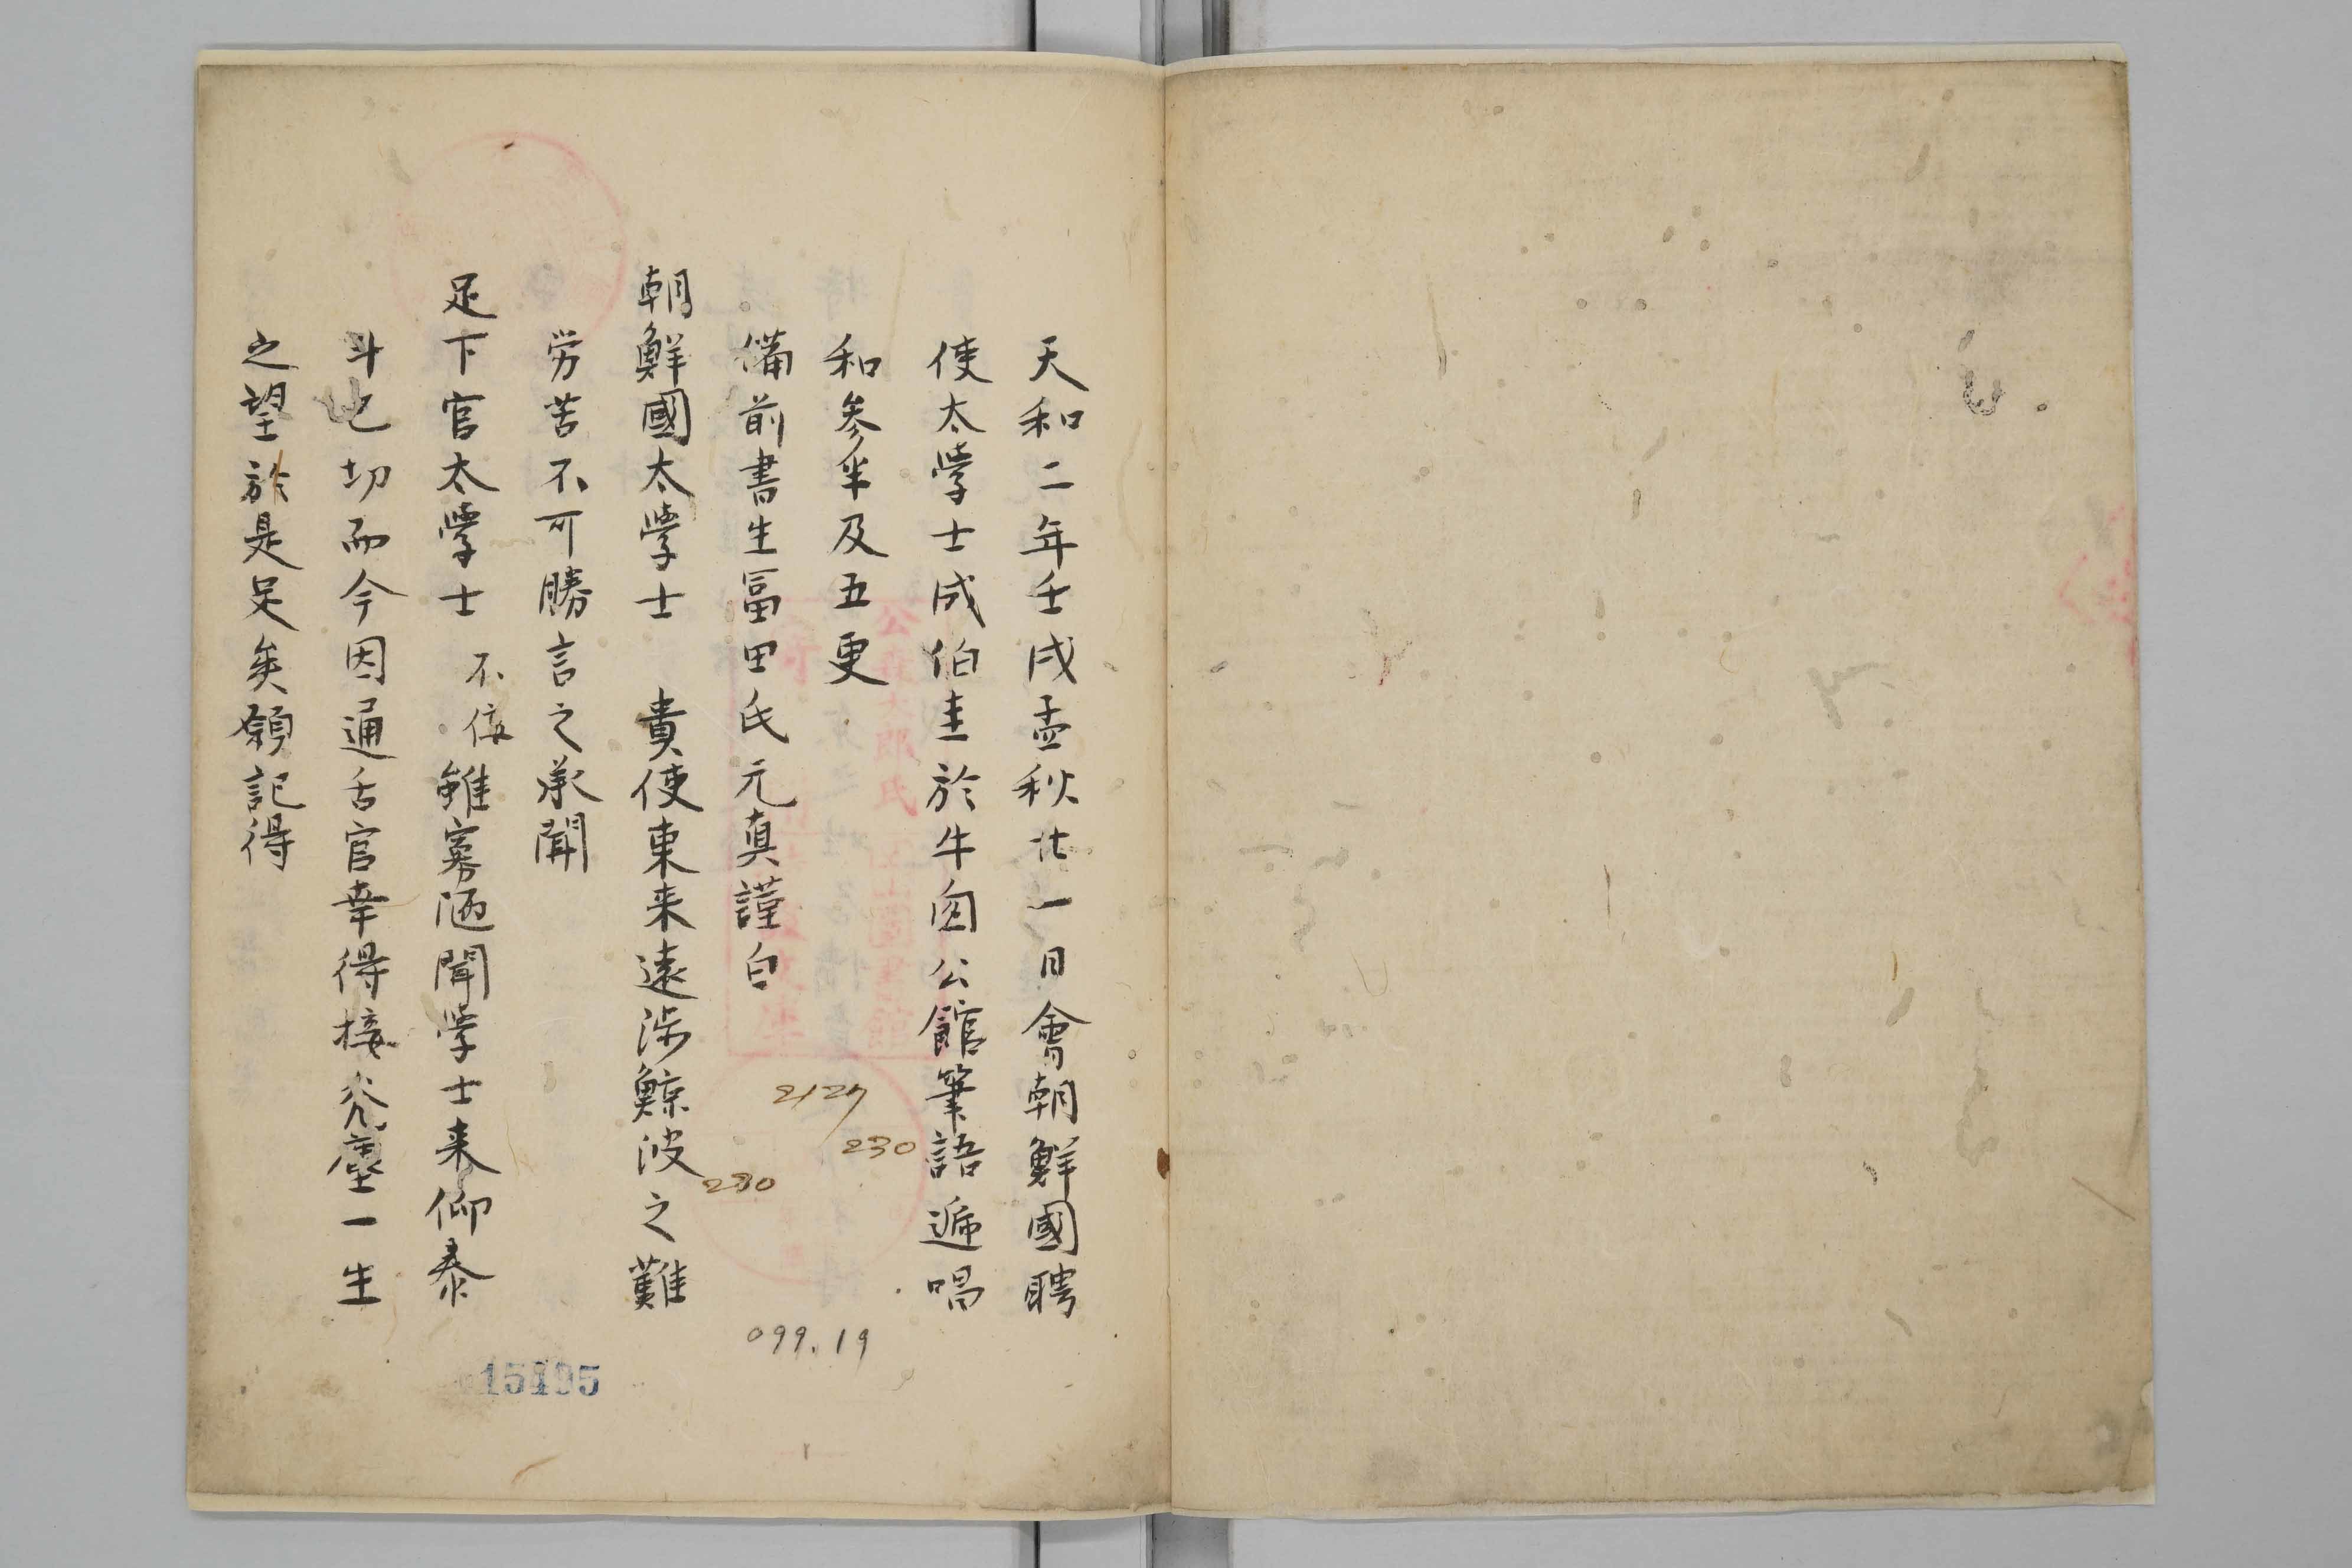 天和二年壬戌孟秋廿一日會朝鮮國聘
使太學士成伯圭於牛窓公館筆語遍唱
和参半及五更
備前書生冨田氏元真謹白
朝鮮國太學士 貴使東来遠渉鯨波之難
労苦不可勝言之承聞
足下官太學士 不侫雖寡陋聞学士来仰泰
斗也切而今因通舌官幸得接光塵一生
之望於是足矣領記得
2127
230
230
099.19
15195